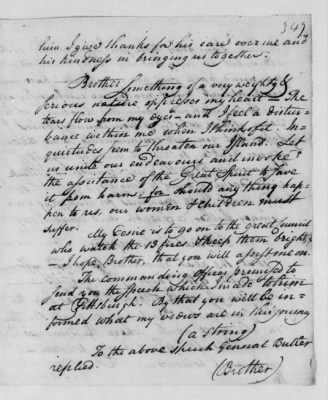 349
him I give thanks for his care over me and
his kindness in bringing us together.
Brother Something of a very weighty &
serious nature oppresses my heart — The
tears flow from my eyes — and I feel a distur-
bance within me when I think of it. In-
quietudes seem to threaten our Island. Let
us unite our endeavours and invoke
the assistance of the Great Spirit to save
it from harm; for should any thing hap-
pen to us, our women & children must
suffer.
My desire is to go on to the great Council
who watch the 13 fires & keep them bright,
— I hope, Brother, that you will assist me on.
The commanding Officer promised to
send you the speech which I made to him
at Pittsburgh. By that you will be in-
formed what my views are in this journey
(a string)
To the above speech General Butler
replied.
(Brother)